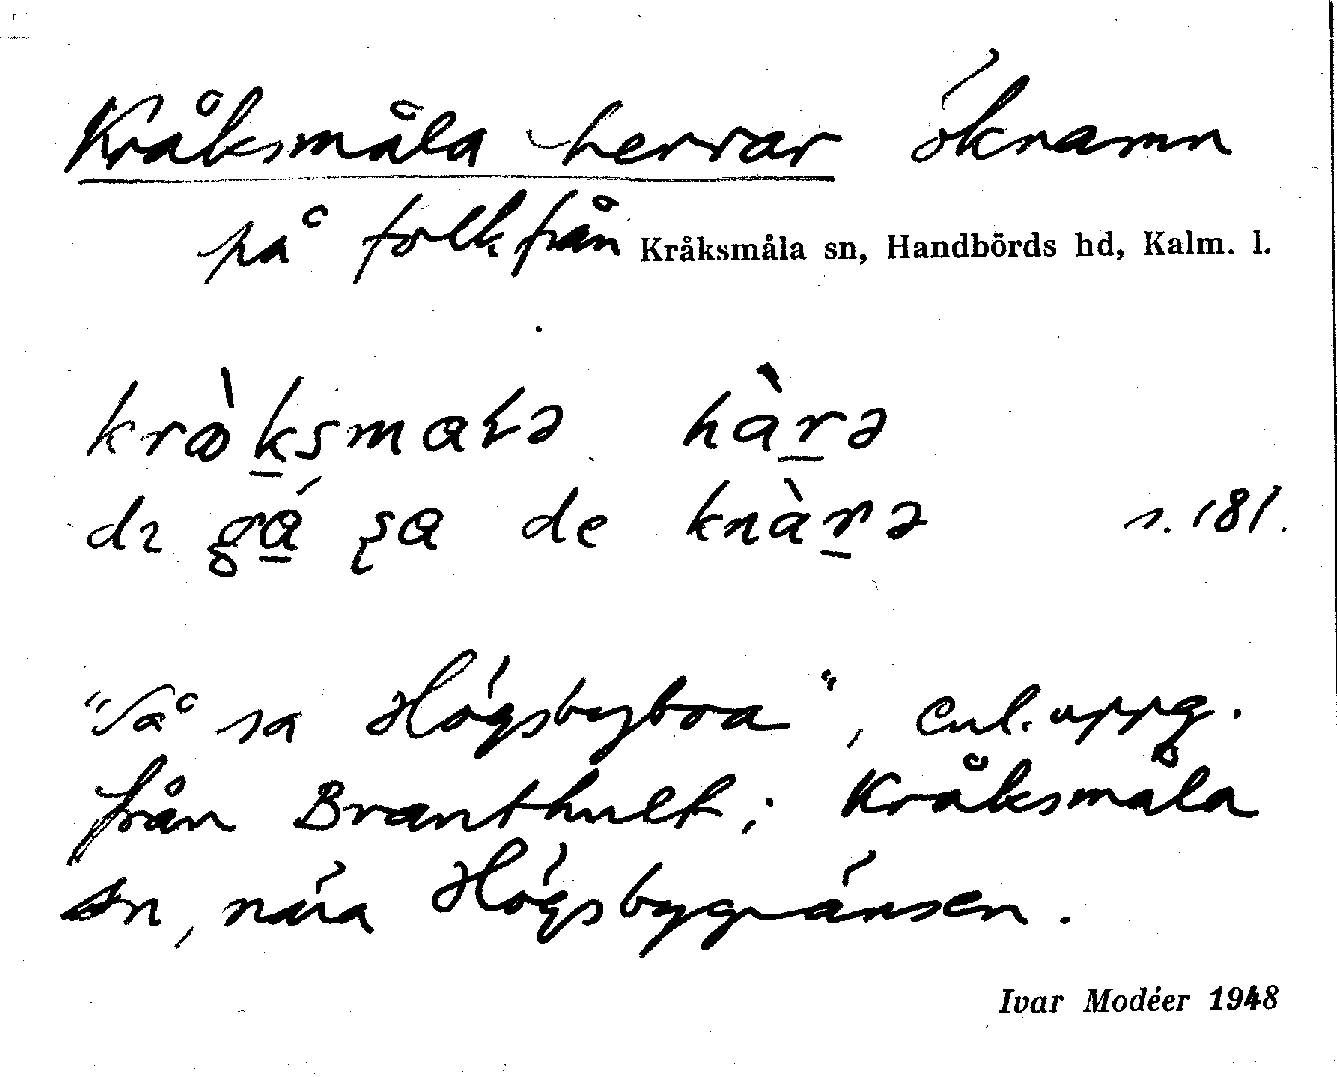 Kråksmåla herrar öknamn
på folk från Kråksmåla sn, Handbörds hd, Kalm. l.
hàrə
de knàrə s. 181.
"Så sa Högsbyboa", enl. uppg.
från Branthult, Kråksmåla
sn, nära Högsbygränsen.
Ivar Modéer 1948